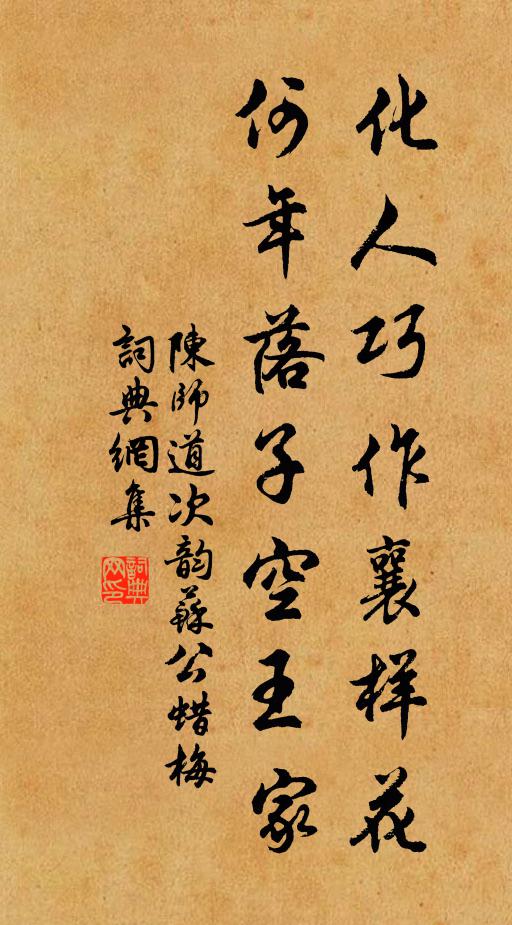 化人巧作襄样花
何年落子空王家
陳師道次韵蘇公蜡梅
詞典網集
詞典网印